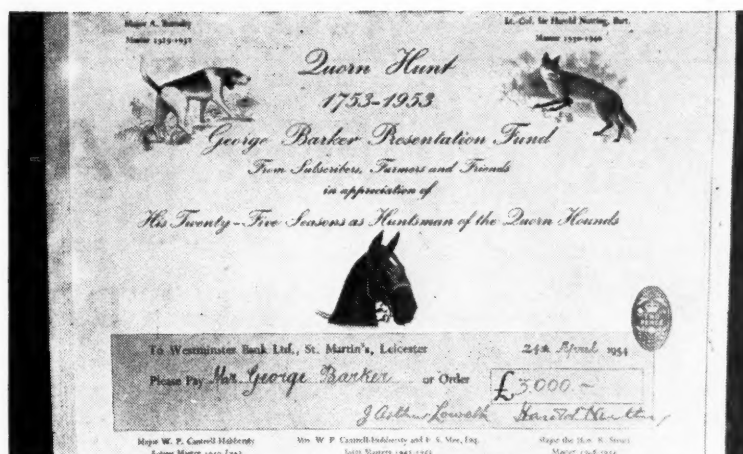 Major A. Burnaby
Lt. Col. Sir Harold Nutting, Bart.
Master
Master 1930-1940
Quorn Hunt
1753-1953
George Barker Presentation Fund
From Subscribers, Farmers and Friends
in appreciation of
His Twenty-Five Seasons as Huntsman of the Quorn Hounds
To Westminster Bank Ltd., St. Martin's, Leicester
24th April 1954
Please Pay Mr. George Barker or Order
£3,000.-
J Arthur Harold Nutting
Major W. P. Cantrell-Hubbersty
Mrs. W. P. Cantrell-Hubbersty and F. S. Mee, Esq.
Major the Hon. R. Strutt
Joint Masters
Master